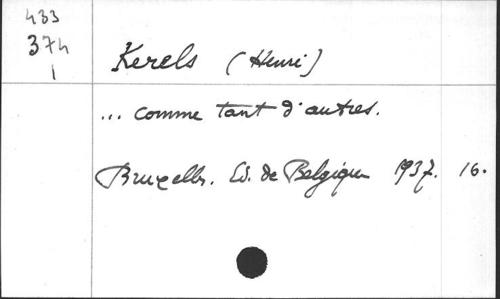 433
374
1
Kerels (Henri)
... comme tant d'autres.
Bruxelles. Ed. de Belgique 1937. 16.